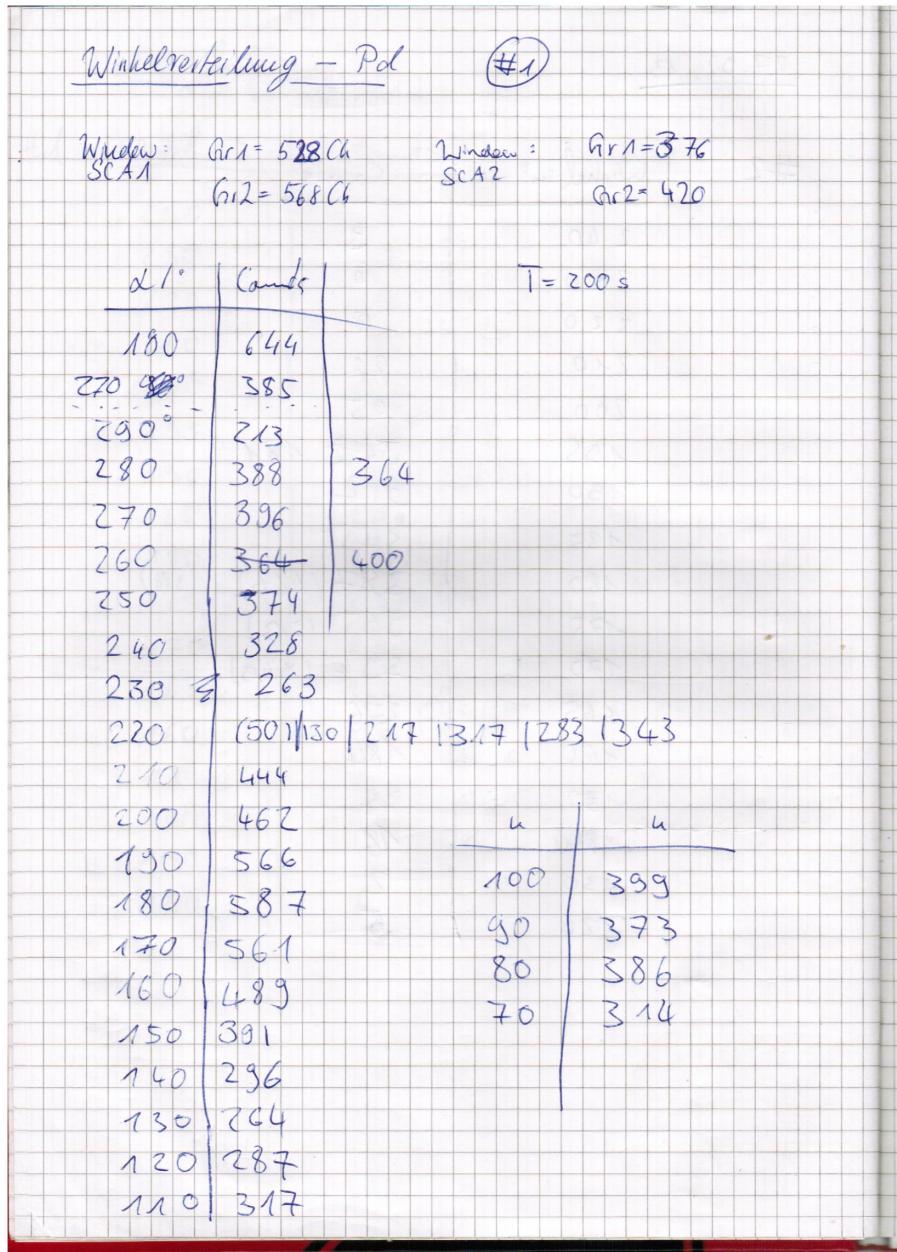 Winkelverteilung – Pd #1
Window: Gr1 = 528 Ch Window: Gr1 = 376
SCA1 SCA2
Gr2 = 568 Ch Gr2 = 420
α/° Counts T = 200 s
180 644
270 385
290° 213
280 388 364
270 396
260 364 400
250 374
240 328
230 263
220 (50)/130/217/317/283/343
210 444
200 462
190 566
180 587
170 561
160 489
150 391
140 296
130 264
120 287
110 317
u u
100 399
90 373
80 386
70 314